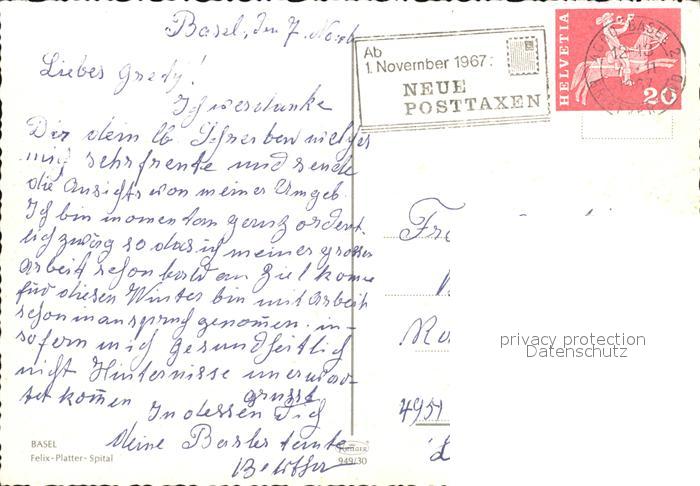 Basel, den 7. Novb.
Liebes Gredy!
Ich verdanke
Dir dein lb Schreiben welches
mich sehr freute und sende
die Ansichts von meiner Umgeb.
Ich bin momentan ganz ordent-
lich zwäg so das ich meiner grossen
Arbeit schon bald an Ziel komme
für diesen Winter bin mit Arbeit
schon in anspruch genommen; in-
sofern mich gesundheitlich
nicht Hinternisse unerwar-
tet komen
In dessen grüsst Dich
Deine Basler tante
BASEL
Felix-Platter-Spital
949/30
Ab
1. November 1967:
NEUE
POSTTAXEN
HELVETIA
20
BASEL 2
Fr
4951
privacy protection
Datenschutz